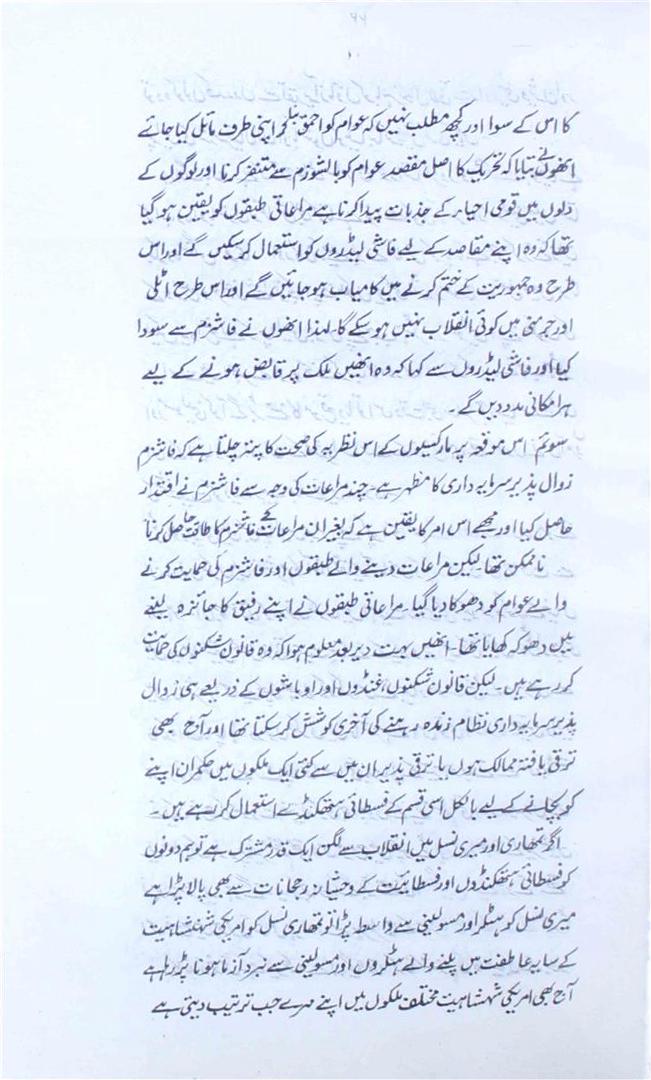 ۶۶
کا اس کے سوا اور کچھ مطلب نہیں کہ عوام کو احمق بناکر اپنی طرف مائل کیا جائے
انھوں نے بتایا کہ تحریک کا اصل مقصد عوام کو بالشوزم سے متنفر کرنا اور لوگوں کے
دلوں میں قومی احیاء کے جذبات پیدا کرنا ہے مراعاتی طبقوں کو یقین ہو گیا
تھا کہ وہ اپنے مقاصد کے لیے فاشی لیڈروں کو استعمال کر سکیں گے اور اس
طرح وہ جمہوریت کے ختم کرنے میں کامیاب ہو جائیں گے اور اس طرح اٹلی
اور جرمنی میں کوئی انقلاب نہیں ہو سکے گا۔ لہذا انھوں نے فاشزم سے سودا
کیا اور فاشی لیڈروں سے کہا کہ وہ انھیں ملک پر قابض ہونے کے لیے
ہر امکانی مدد دیں گے۔
سوئم، اس موقعہ پر مارکسیوں کے اس نظریہ کی صحت کا پتہ چلتا ہے کہ فاشزم
زوال پذیر سرمایہ داری کا مظہر ہے۔ چند مراعات کی وجہ سے فاشزم نے اقتدار
حاصل کیا اور مجھے اس امر کا یقین ہے کہ بغیر ان مراعات کے فاشزم کا طاقت حاصل کرنا
ناممکن تھا لیکن مراعات دینے والے طبقوں اور فاشزم کی حمایت کرنے
والے عوام کو دھوکا دیا گیا۔ مراعاتی طبقوں نے اپنے رفیق کا جائزہ لینے
میں دھوکہ کھایا تھا۔ انھیں بہت دیر بعد معلوم ہوا کہ وہ قانون شکنوں کی حمایت
کر رہے ہیں۔ لیکن قانون شکنوں، غنڈوں اور اوباشوں کے ذریعے ہی زوال
پذیر سرمایہ داری نظام زندہ رہنے کی آخری کوشش کر سکتا تھا اور آج بھی
ترقی یافتہ ممالک ہوں یا ترقی پذیر ان میں سے کتنی ایک ملکوں میں حکمران اپنے
کو بچانے کے لیے بالکل اسی قسم کے فسطائی ہتھکنڈے استعمال کر رہے ہیں۔
اگر تمھاری اور میری نسل میں انقلاب سے لگن ایک قدر مشترک ہے تو ہم دونوں
کو فسطائی ہتھکنڈوں اور فسطائیت کے وحشیانہ رجحانات سے بھی پالا پڑا ہے
میری نسل کو ہٹلر اور مسولینی سے واسطہ پڑا تو تمھاری نسل کو امریکی شہنشاہیت
کے سایہ عاطفت میں پلنے والے ہٹلروں اور مسولینی سے نبرد آزما ہونا پڑ رہا ہے
آج بھی امریکی شہنشاہیت مختلف ملکوں میں اپنے مہرے جب ترتیب دیتی ہے